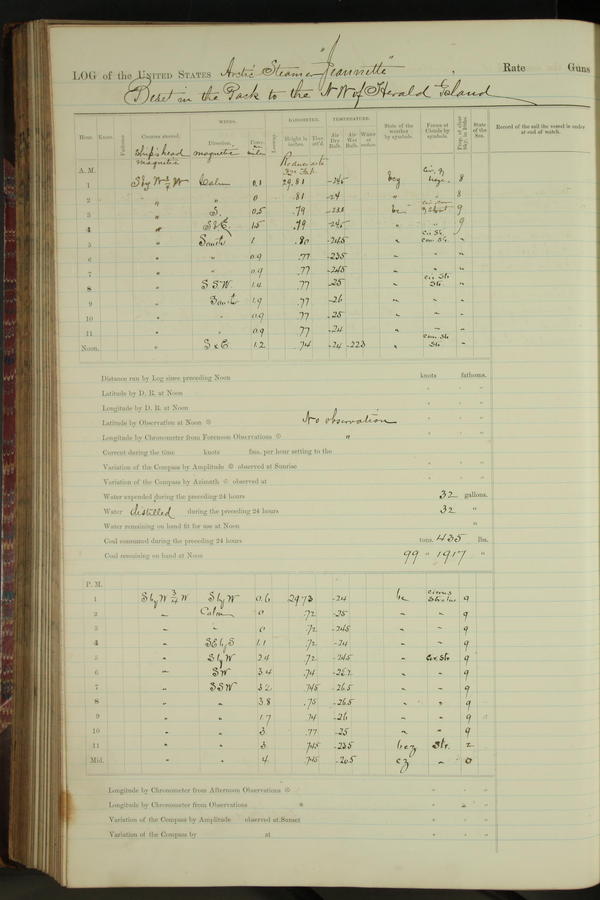 LOG of the UNITED STATES Arctic Steamer "Jeannette" Rate Guns
Beset in the Pack to the NW of Herald Island
WINDS. BAROMETER. TEMPERATURE.
Hour. Knots. Fathoms. Courses steered. Direction. Force Leeway. Height in inches. Ther. att'd. Air Dry Bulb. Air Wet Bulb. Water at surface. State of the weather by symbols. Forms of Clouds by symbols. Prop. of clear Sky, in 10ths. State of the Sea. Record of the sail the vessel is under at end of watch.
Ship's head magnetic magnetic
A. M.
1 SbyW¾W Calm 0.1 29.81 bcz 8
2 " " 0 .81 -24 " 8
3 " S. 0.5 .79 9
4 " SbyE. 1.5 .79 -24.5 " 9
5 " South 1 .80 -24.5 "
6 " " 0.9 .77 -23.5 " " "
7 " " 0.9 .77 -24.5 " " "
8 " S S.W. 1.4 .77 -25 " "
9 " South 1.9 .77 -26 " " "
10 " " 0.9 .77 -25 " " "
11 " " 0.9 .77 -24 " " "
Noon. " S x E. 1.2 .74 -24 -22.3 " "
Distance run by Log since preceding Noon knots fathoms.
Latitude by D. R. at Noon
Longitude by D. R. at Noon
Latitude by Observation at Noon No observation
Longitude by Chronometer from Forenoon Observations "
Current during the time knots fms. per hour setting to the
Variation of the Compass by Amplitude observed at Sunrise
Variation of the Compass by Azimuth observed at
Water expended during the preceding 24 hours 32 gallons.
Water distilled during the preceding 24 hours 32 "
Water remaining on hand fit for use at Noon "
Coal consumed during the preceding 24 hours tons. 435 lbs.
Coal remaining on hand at Noon 99 " 1917 "
P. M.
1 SbyW¾W SbyW 0.6 29.73 -24 bc cirrus stratus 9
2 " Calm 0 .72 -25 " " 9
3 " " 0 .72 -24.5 " " 9
4 " SEbyS 1.1 .72 -24 " " 9
5 " SbyW 2.4 .72 -24.5 " Cir.Str. 9
6 " SW 3.4 .74 " " 9
7 " SSW 3.2 .745 -26.5 " " 9
8 " " 3.8 .75 -26.5 " " 9
9 " " 1.7 .74 -26 " " 9
10 " " 3. .77 -25 " " 9
11 " " 3. .745 -23.5 bcz Str. 2
Mid. " " 4. .745 -20.5 cz " 0
Longitude by Chronometer from Afternoon Observations
Longitude by Chronometer from Observations
Variation of the Compass by Amplitude observed at Sunset
Variation of the Compass by at